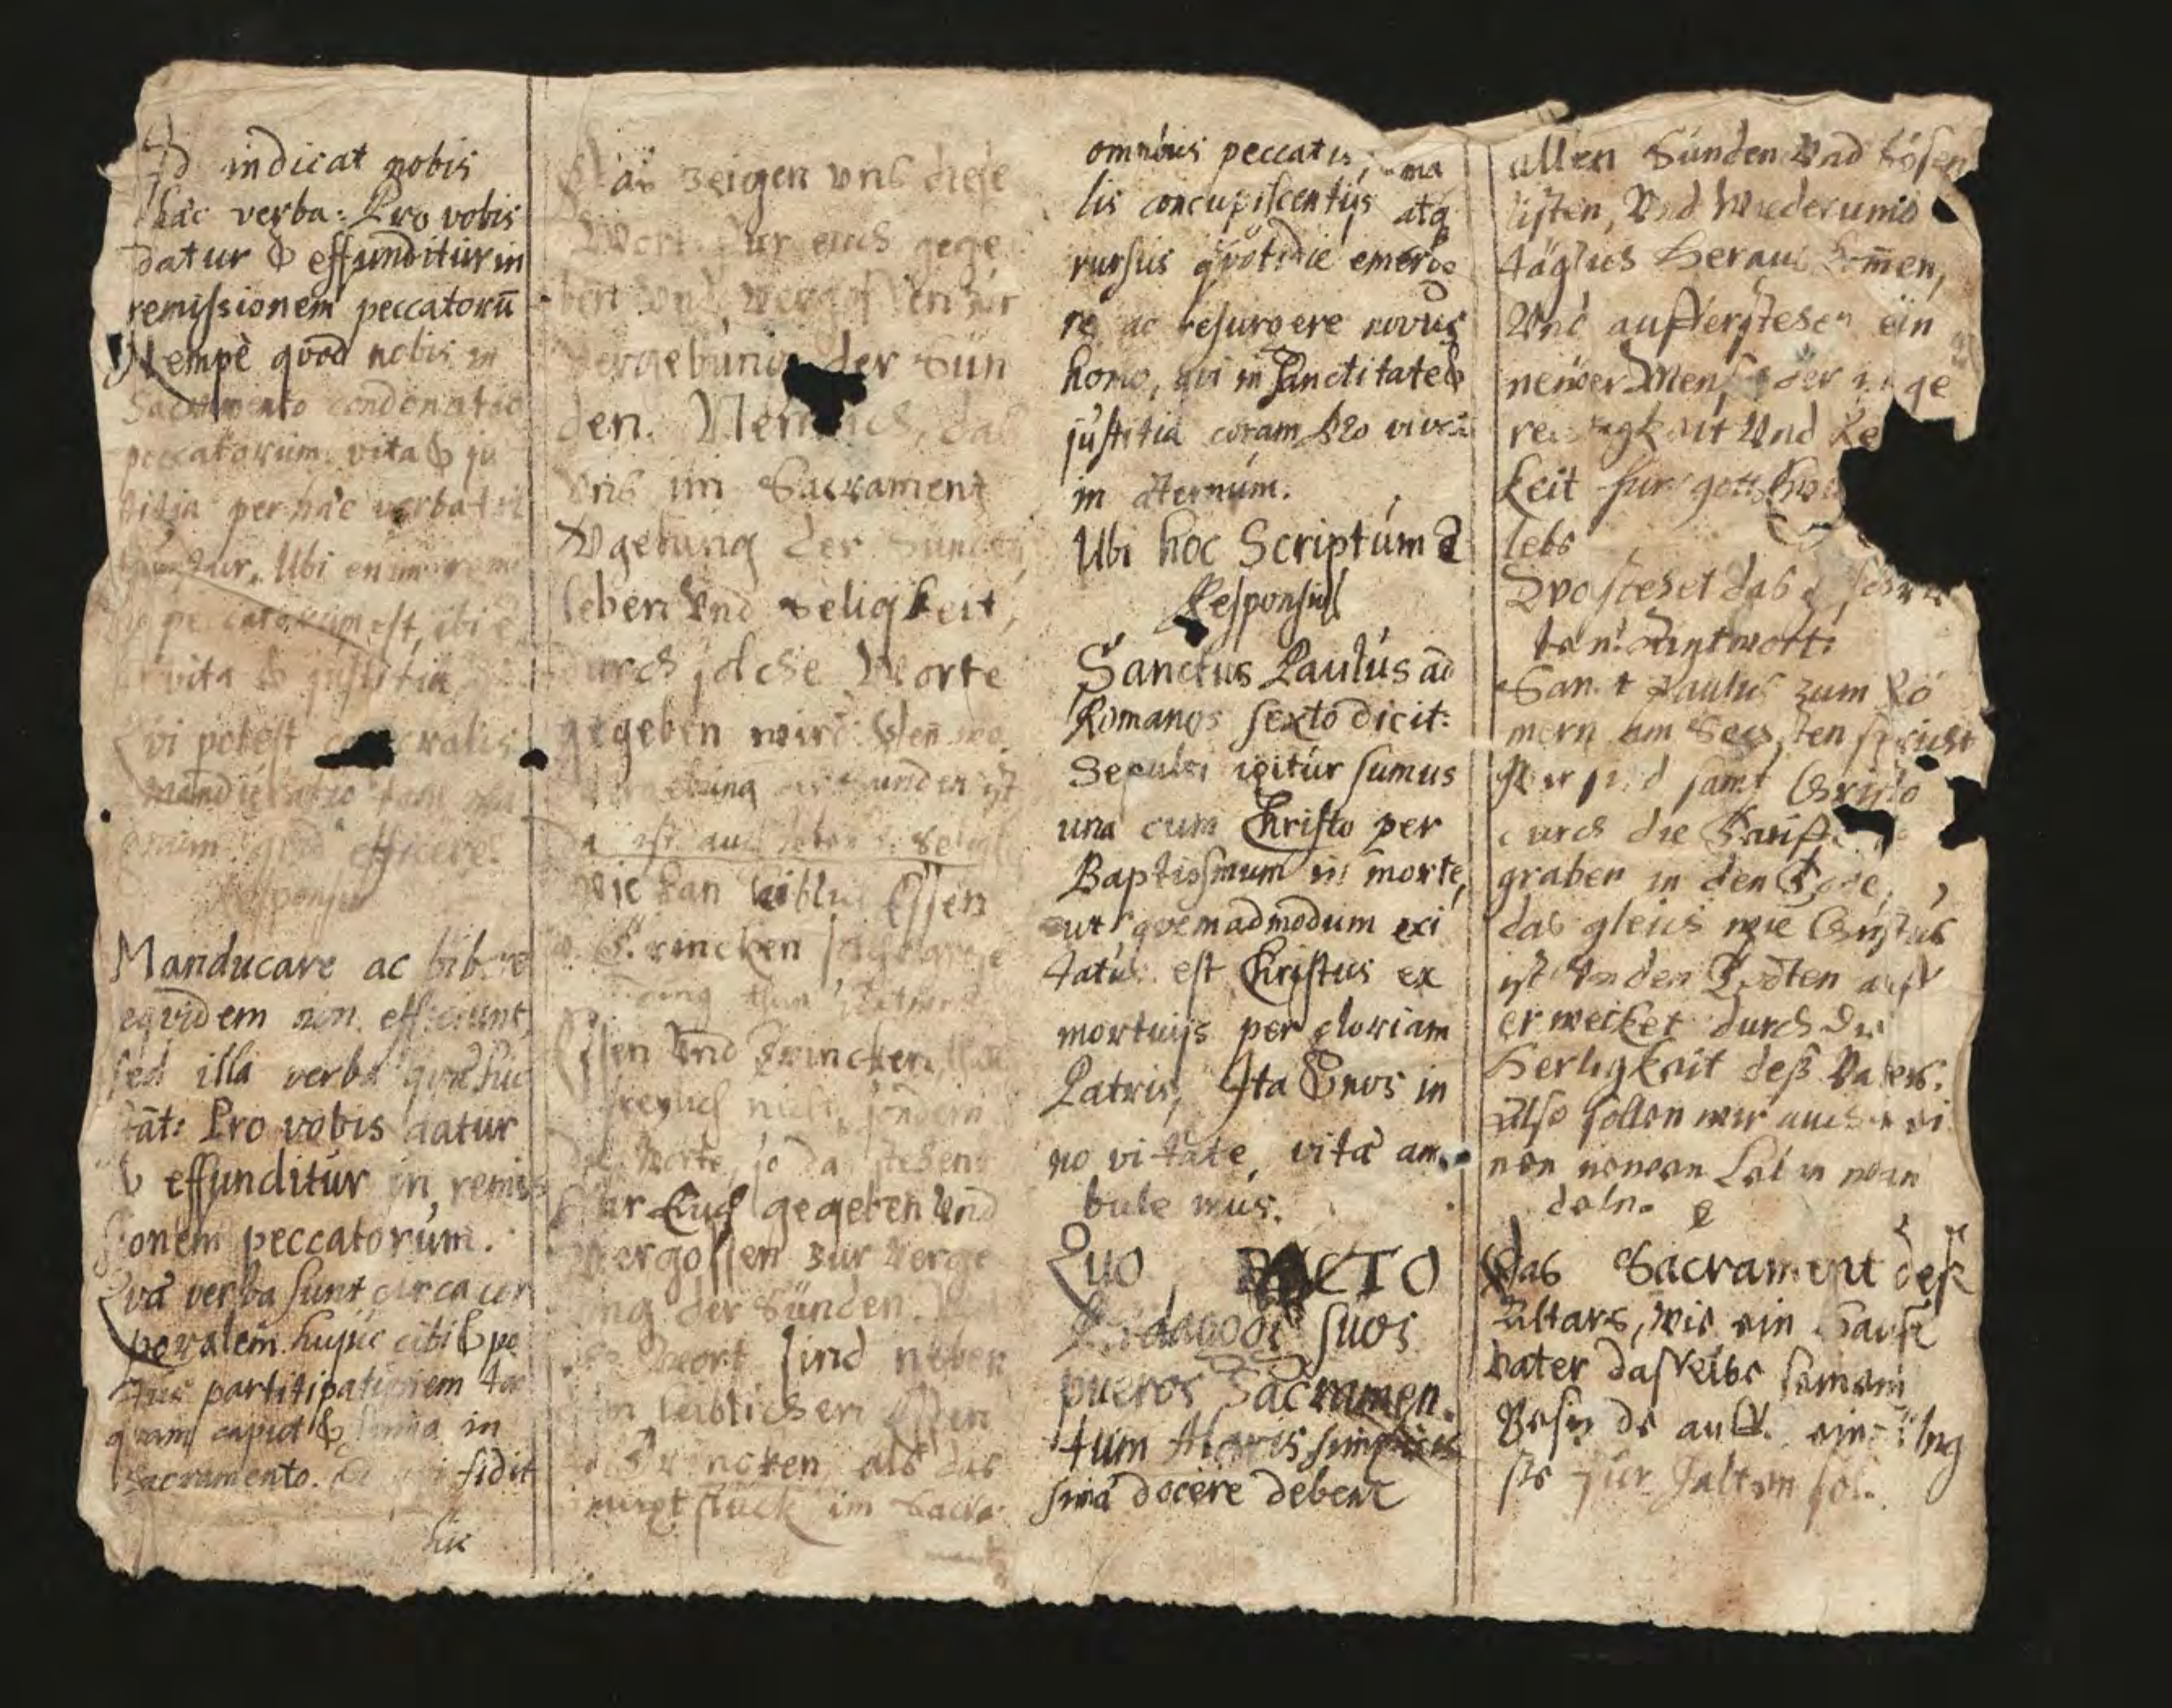 Id indicat nobis
hæc verba: Pro vobis
datur & effunditur in
remissionem peccatorū
Nempè qvod nobis in
Sacramento condonatio
peccatorum vita & ju
titia per hæc verba
Ubi enim remi
peccatorum est, ibi e
vita & justitia
Qvi potest corporalis
manducatio tam
efficere?
Responsio
Manducare ac bibere
eqvidem non efficiunt,
sed illa verba qvæ hic
tāt: Pro vobis datur
& effunditur in remis
sionem peccatorúm.
Qvæ verba sunt circa cor
poralem hujus cibi & po
tus participationem tan
quam caput & suma in
Sacramento. fidit
his
zeigen vns diese
Wort für euch gege
ben vnd vergossen zur
vergebung der Sün
den. Nemlich, das
vns im Sacrament
Vgebung der Sunden,
leben Vnd Seligkeit,
durch solche Worte
gegeben wird. Den wo
vergebung der sunden ist
da ist auch leben Selig
Wie kan leiblich Essen
Trincken solch grosse
ding thun Antwort
Essen Vnd Trincken thut
freylich nicht, sondern
die Worte, so da stehen
Für Euch gegeben Vnd
Vergossen zur Verge
ung der Sünden.
Wort sind neben
dem leiblichen Essen
Trincken als das
haupt stück im Sacra
ment
omnibus peccatis, ma
lis concupiscentiis atq
rursus qvotidie emerge
re ac resurgere novus
homo, qui in Sanctitate &
justitia coram Deo vivat
in æternúm.
Ubi hoc Scriptúm ē
Responsio
Sanctus Paulús ad
Romanos sexto dicit:
Sepulti igitúr sumus
una cum Christo per
Baptissmum in morte,
ut qvemadmodum exci
tatus est Christus ex
mortuijs per gloriam
Patris, Ita & nos in
no vitate vitæ am
bule mús.
Quo PACTO
Pædagogi suos
pueros Sacramen.
tum Altaris simplicis
simæ docere debent
allen Sünden Vnd bösen
listen, Vnd Wiederumb
täglich Heraus komen,
Vnd aufferstehen ein
newer Mensch der in ge
rechtigkeit Vnd Re
keit fur gott
lebs
Wo stehet das schri
ben? Antwort:
Sanct Paulus zum Rö
mern am Sechsten spricht
Wir sind samt Christo
durch die Tauffe
graben in den Tode,
das gleich wie Christus
ist Von den Todten auff
erwecket durch die
Herligkeit deß Vaters.
Also sollen wir auch in ei
nen newen Leben wan
deln.
Das Sacrament deß
Altars, wie ein Hauß
vater dasselbe seinem
Gesinde auffs einfeltig
ste für halten sol.